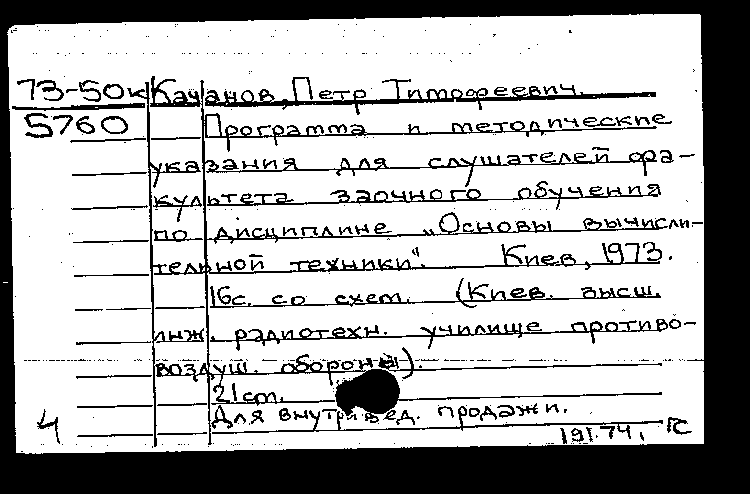 73-50к Качанов, Петр Тимофеевич.
5760 Программа и методические
указания для слушателей фа-
культета заочного обучения
по дисциплине „Основы вычисли-
тельной техники". Киев, 1973.
16с. со схем. (Киев. высш.
инж. радиотехн. училище противо-
воздуш. обороны).
21cm.
Для внутривед. продажи.
4 191.74. ГС